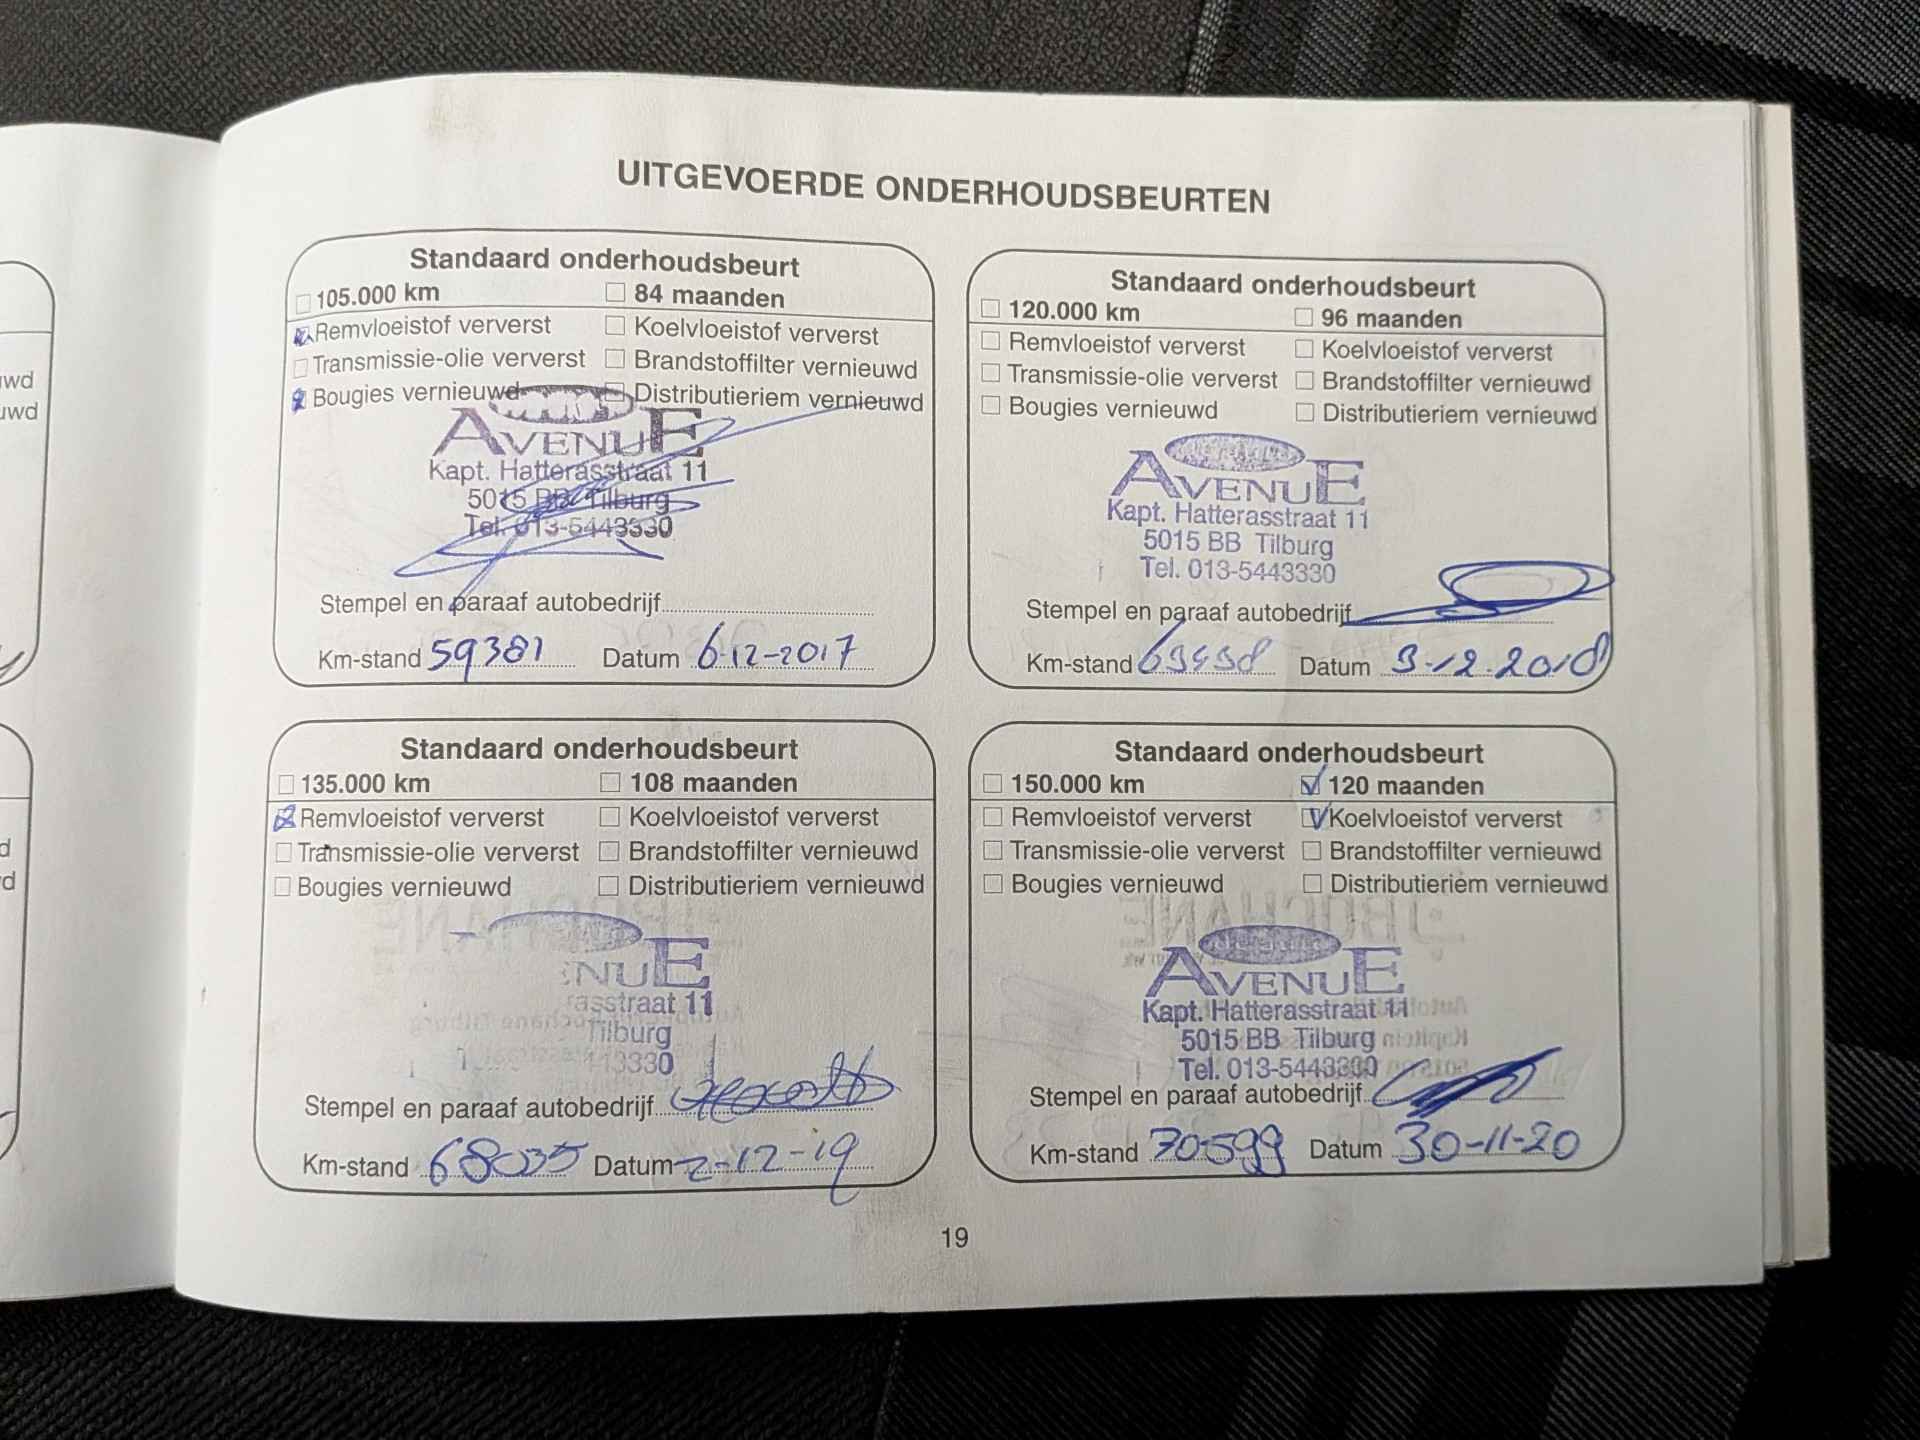 UITGEVOERDE ONDERHOUDSBEURTEN
Standaard onderhoudsbeurt
105.000 km 84 maanden
Remvloeistof ververst Koelvloeistof ververst
Transmissie-olie ververst Brandstoffilter vernieuwd
Bougies vernieuwd Distributieriem vernieuwd
AVENUE
Kapt. Hatterasstraat 11
5015 BB Tilburg
Tel. 013-5443330
Stempel en paraaf autobedrijf
Km-stand 59381 Datum 6-12-2017
Standaard onderhoudsbeurt
120.000 km 96 maanden
Remvloeistof ververst Koelvloeistof ververst
Transmissie-olie ververst Brandstoffilter vernieuwd
Bougies vernieuwd Distributieriem vernieuwd
AVENUE
Kapt. Hatterasstraat 11
5015 BB Tilburg
Tel. 013-5443330
Stempel en paraaf autobedrijf
Km-stand Datum 3-12-2018
Standaard onderhoudsbeurt
135.000 km 108 maanden
Remvloeistof ververst Koelvloeistof ververst
Transmissie-olie ververst Brandstoffilter vernieuwd
Bougies vernieuwd Distributieriem vernieuwd
NUE
rasstraat 11
Tilburg
3330
Stempel en paraaf autobedrijf
Km-stand 68035 Datum 2-12-19
Standaard onderhoudsbeurt
150.000 km 120 maanden
Remvloeistof ververst Koelvloeistof ververst
Transmissie-olie ververst Brandstoffilter vernieuwd
Bougies vernieuwd Distributieriem vernieuwd
AVENUE
Kapt. Hatterasstraat 11
5015 BB Tilburg
Tel. 013-5443330
Stempel en paraaf autobedrijf
Km-stand 70599 Datum 30-11-20
19
uwd
uwd
d
d